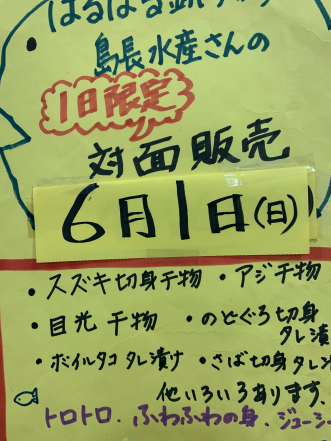 はるばる
島長水産さんの
1日限定
対面販売
6月1日(日)
・スズキ切身干物 ・アジ干物
・目光干物 ・のどぐろ切身
タレ漬
・ボイルタコタレ漬け ・さば切身タレ
他いろいろあります。
トロトロ.ふわふわの身.ジューシ